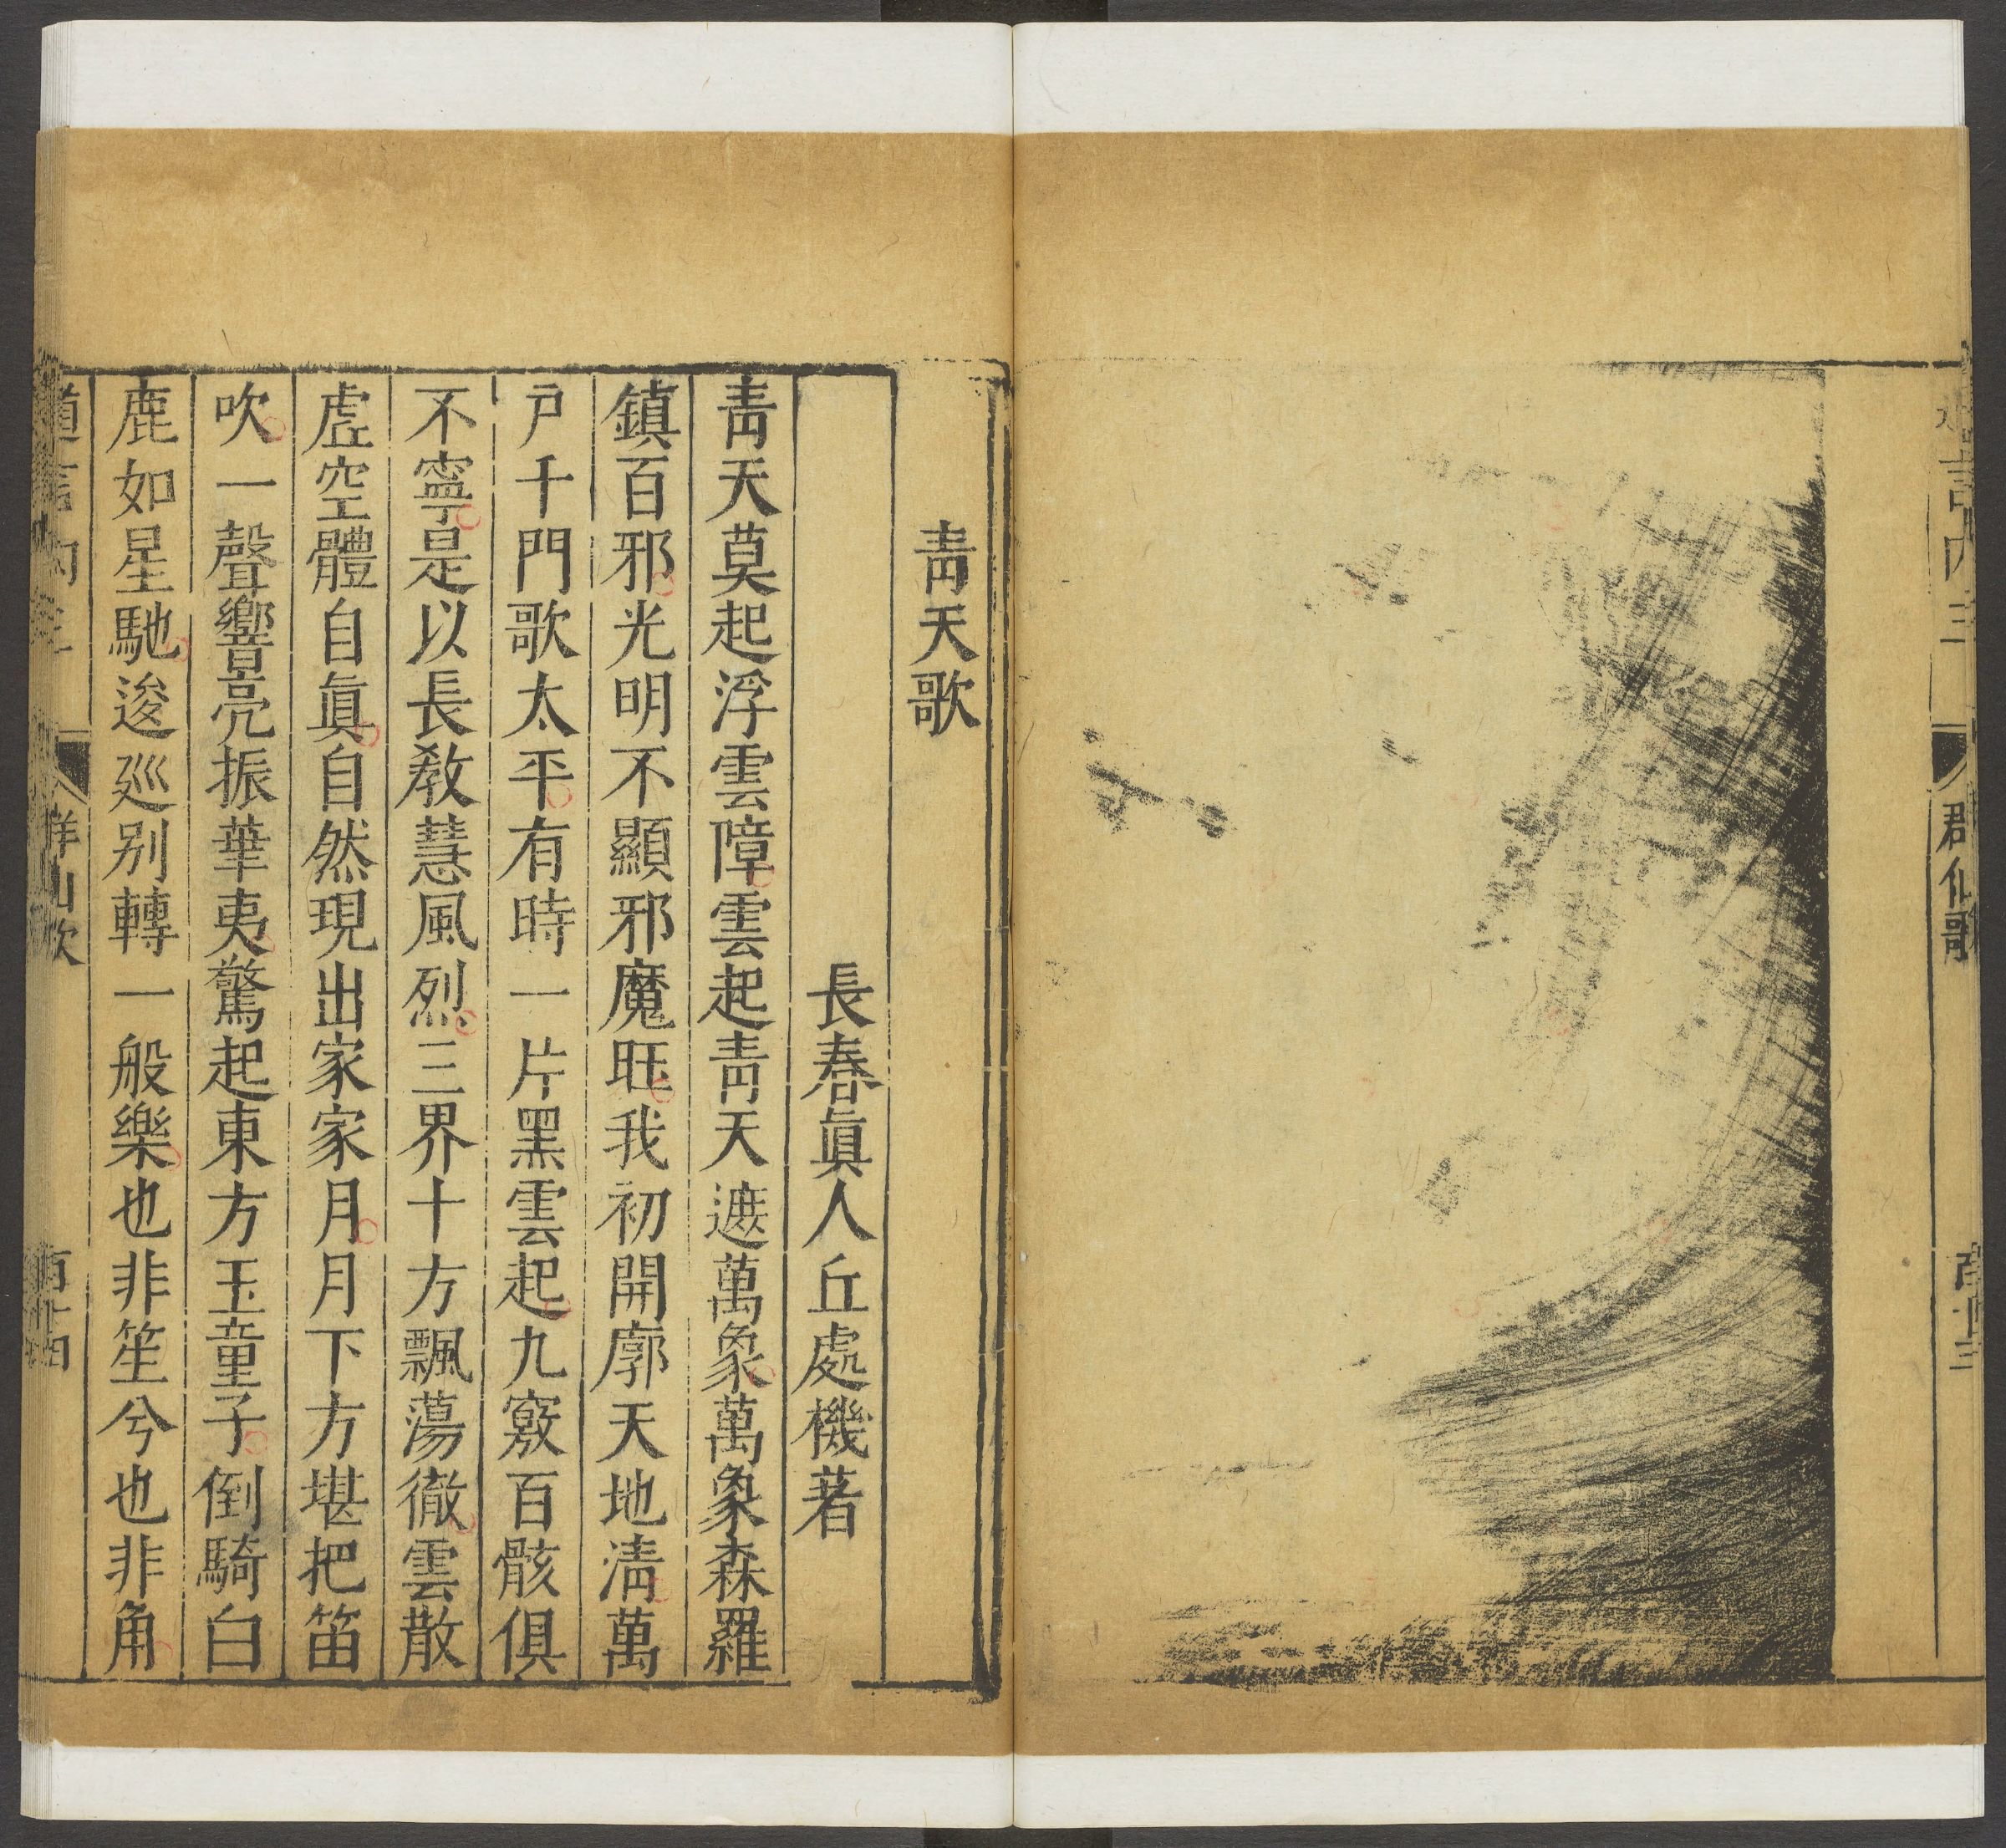 群仙歌
青天歌
長春眞人丘處機著
靑天莫起浮雲障雲起靑天遮萬象萬象森羅
鎮百邪光明不顯邪魔旺我初開廓天地淸萬
戸千門歌太平有時一片黑雲起九竅百骸俱
不寧是以長教慧風烈三界十方飄蕩徹雲散
虛空體自眞自然現出家家月月下方堪把笛
吹一聲響亮振華夷驚起東方玉童子倒騎白
鹿如星馳逡廵别轉一般樂也非笙兮也非角
道言内